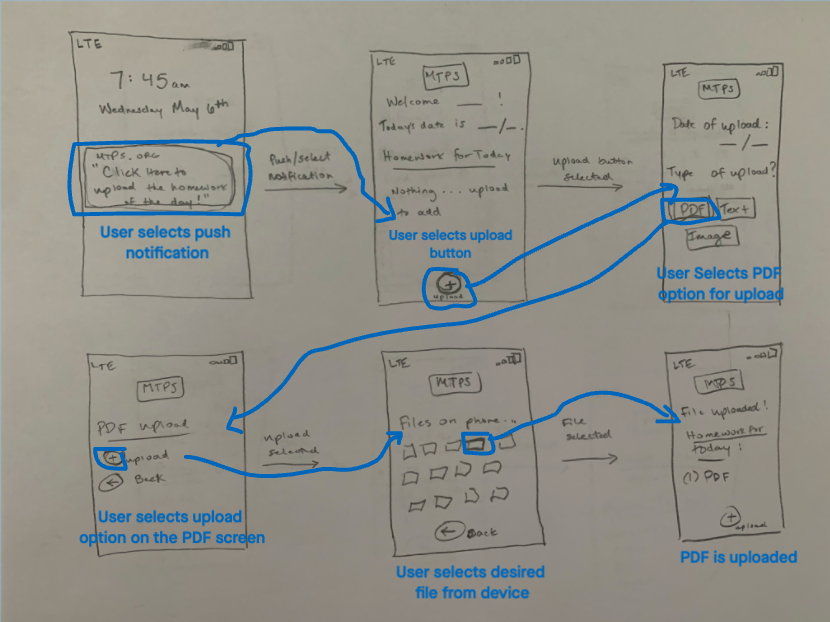 LTE
7:45am
Wednesday May 6th
MTPS.ORG
"Click Here to
upload the homework
of the day!"
User selects push
notification
Push/select
notification
LTE
MTPS
Welcome ___ !
Today's date is __/__.
Homework for Today
Nothing... upload
to add
User selects upload
button
upload
Upload button
selected
LTE
MTPS
Date of upload:
__/__
Type of upload?
PDF Text
Image
User Selects PDF
option for upload
LTE
MTPS
PDF upload
upload
Back
User selects upload
option on the PDF screen
upload
selected
LTE
MTPS
Files on phone...
Back
User selects desired
file from device
File
selected
LTE
MTPS
File uploaded!
Homework for
today:
(1) PDF
upload
PDF is uploaded